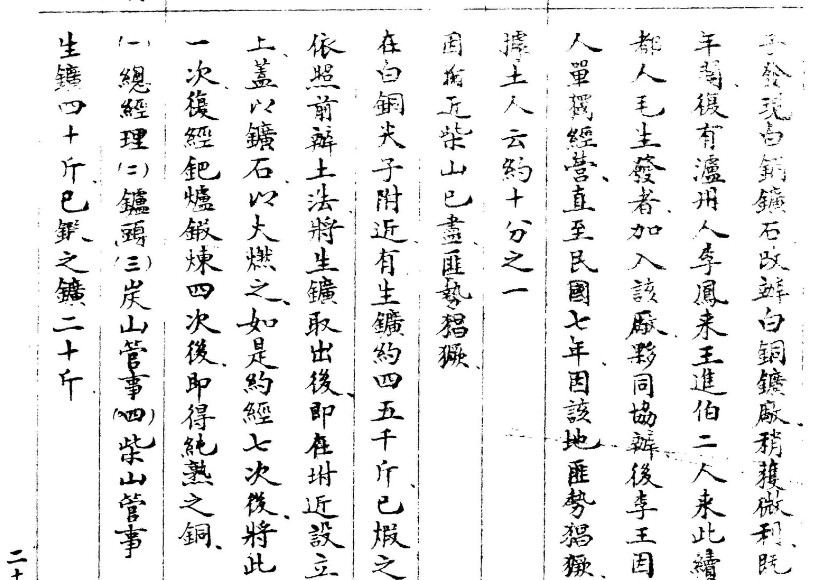 子發現白銅鑛石改辦白銅鑛廠稍獲微利、旣
年閒復有瀘州人李鳳来王進伯二人来此續
都人毛生發者加入該廠夥同協辦後李王因
人單獨經營、直至民國七年因該地匪勢猖獗、
據土人云約十分之一
因附近柴山已盡匪勢猖獗、
在白銅尖子附近有生鑛約四五千斤、已煆之
依照前辦土法將生鑛取出後、即在坿近設立
上、蓋以鑛石、以火燃之、如是約經七次後、將此
一次復經鈀爐鍛煉四次後、即得純熟之銅、
㈠總經理㈡鑪頭㈢炭山管事㈣柴山管事
生鑛四十斤、已煅之鑛二十斤、
二十